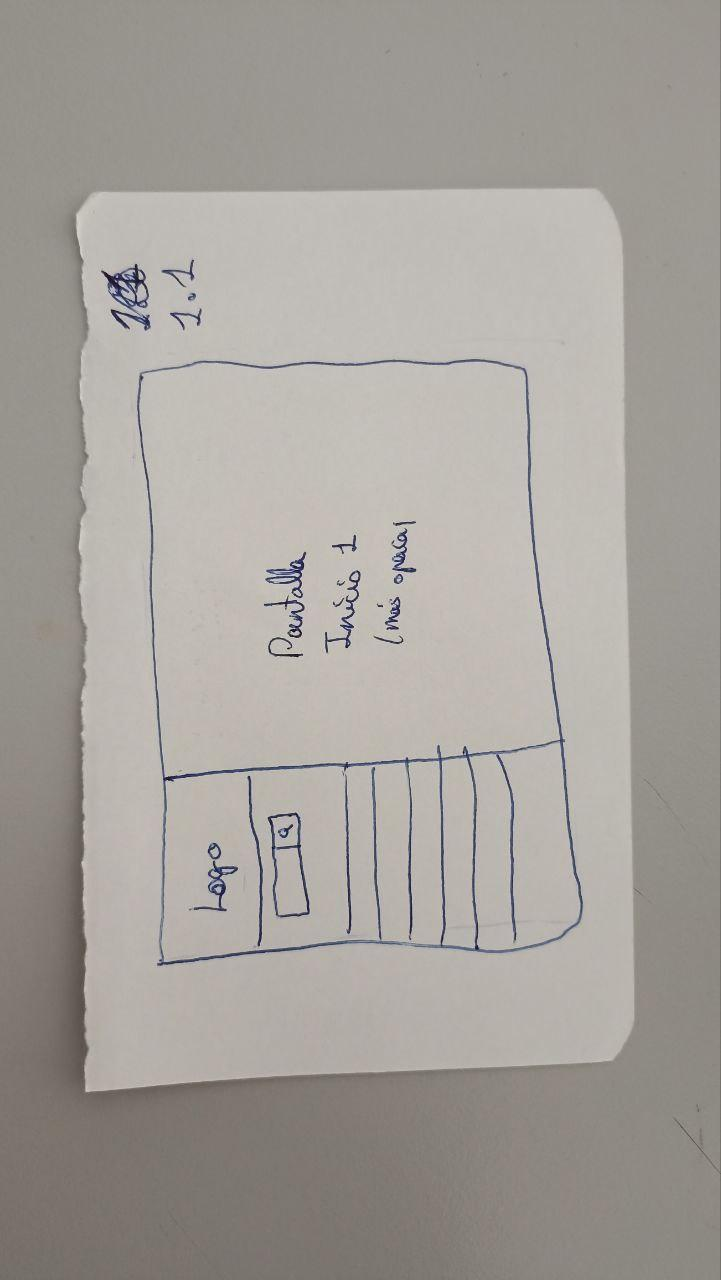 1.1
Logo
Pantalla
Inicio 1
(más opaca)